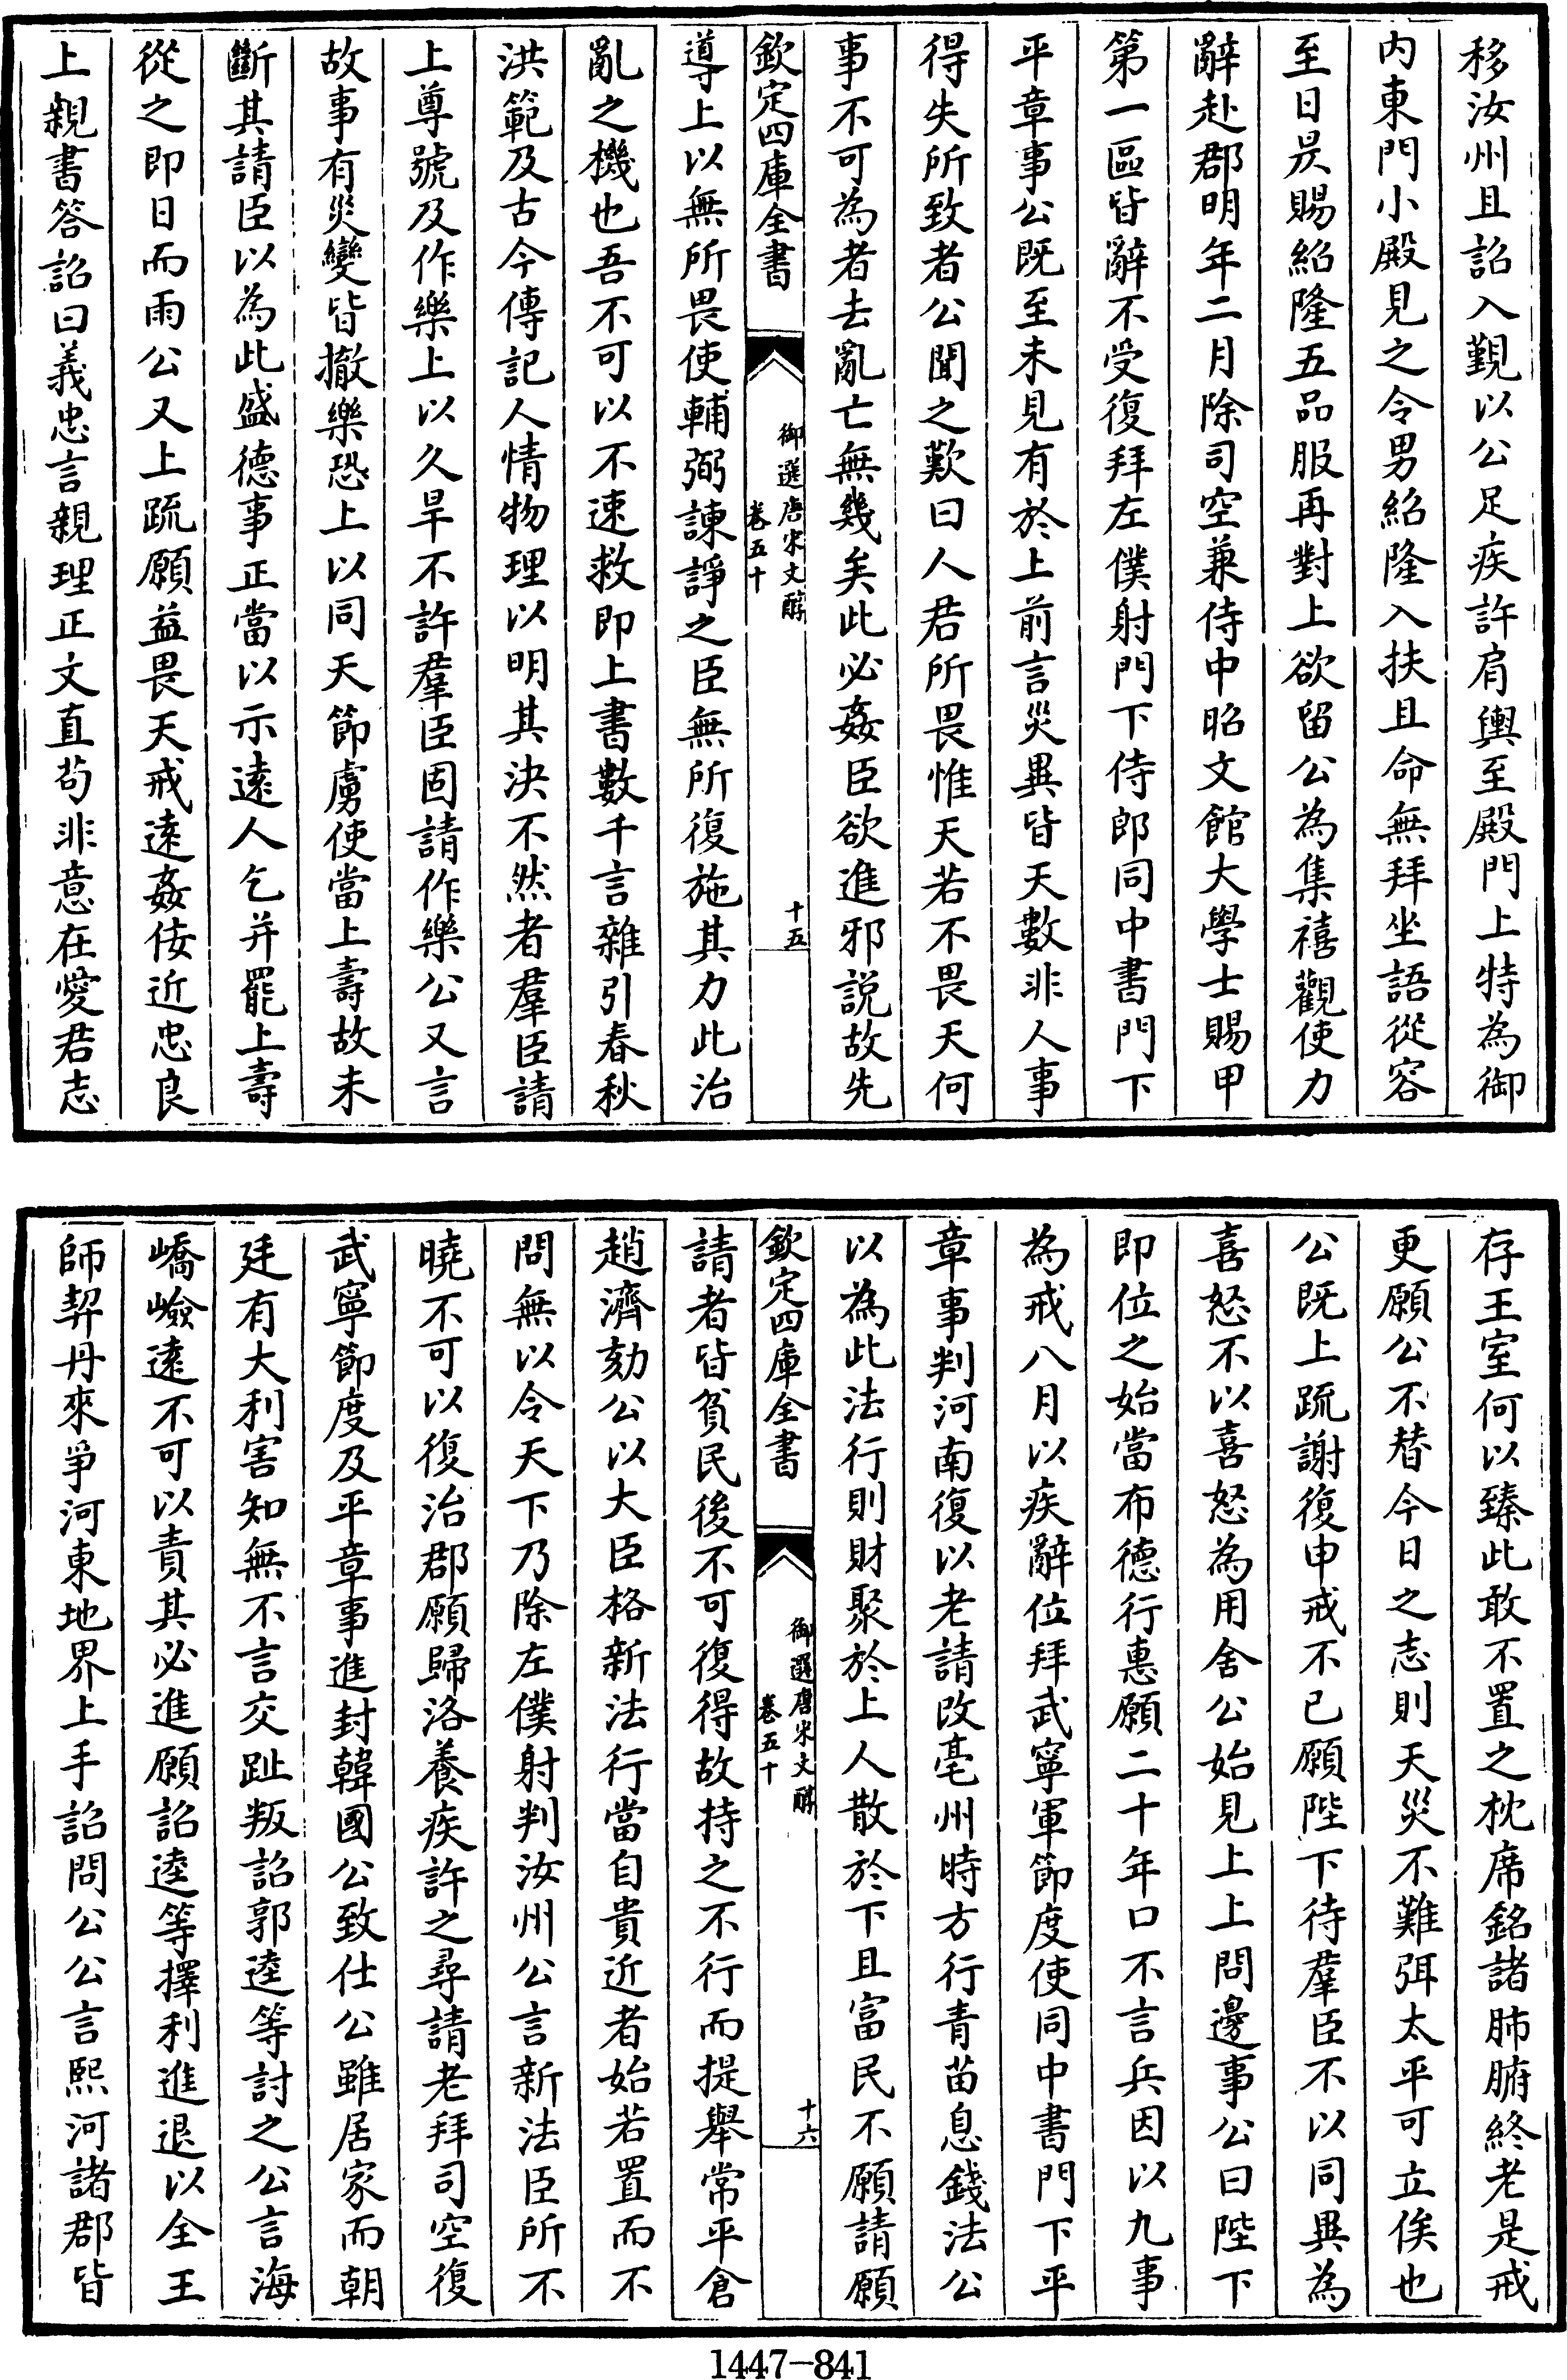 移汝州且詔入覲以公足疾許肩輿至殿門上特為御
内東門小殿見之令男紹隆入扶且命無拜坐語從容
至日昃賜紹隆五品服再對上欲留公為集禧觀使力
辭赴郡明年二月除司空兼侍中昭文館大學士賜甲
第一區皆辭不受復拜左僕射門下侍郎同中書門下
平章事公既至未見有於上前言災異皆天數非人事
得失所致者公聞之歎曰人君所畏惟天若不畏天何
事不可為者去亂亡無幾矣此必姦臣欲進邪説故先
欽定四庫全書
御選唐宋文醇
卷五十
十五
導上以無所畏使輔弼諫諍之臣無所復施其力此治
亂之機也吾不可以不速救即上書數千言雜引春秋
洪範及古今傳記人情物理以明其決不然者羣臣請
上尊號及作樂上以久旱不許羣臣固請作樂公又言
故事有災變皆撤樂恐上以同天節虜使當上壽故未
斷其請臣以為此盛德事正當以示遠人乞并罷上壽
從之即日而雨公又上疏願益畏天戒遠姦佞近忠良
上親書答詔曰義忠言親理正文直苟非意在愛君志
存王室何以臻此敢不置之枕席銘諸肺腑終老是戒
更願公不替今日之志則天災不難弭太平可立俟也
公既上疏謝復申戒不已願陛下待羣臣不以同異為
喜怒不以喜怒為用舍公始見上上問邊事公曰陛下
即位之始當布德行惠願二十年口不言兵因以九事
為戒八月以疾辭位拜武寧軍節度使同中書門下平
章事判河南復以老請改亳州時方行青苗息錢法公
以為此法行則財聚於上人散於下且富民不願請願
欽定四庫全書
御選唐宋文醇
卷五十
十六
請者皆貧民後不可復得故持之不行而提舉常平倉
趙濟劾公以大臣格新法行當自貴近者始若置而不
問無以令天下乃除左僕射判汝州公言新法臣所不
曉不可以復治郡願歸洛養疾許之尋請老拜司空復
武寧節度及平章事進封韓國公致仕公雖居家而朝
廷有大利害知無不言交趾叛詔郭逵等討之公言海
嶠嶮遠不可以責其必進願詔逵等擇利進退以全王
師契丹來爭河東地界上手詔問公公言熙河諸郡皆
1447-841